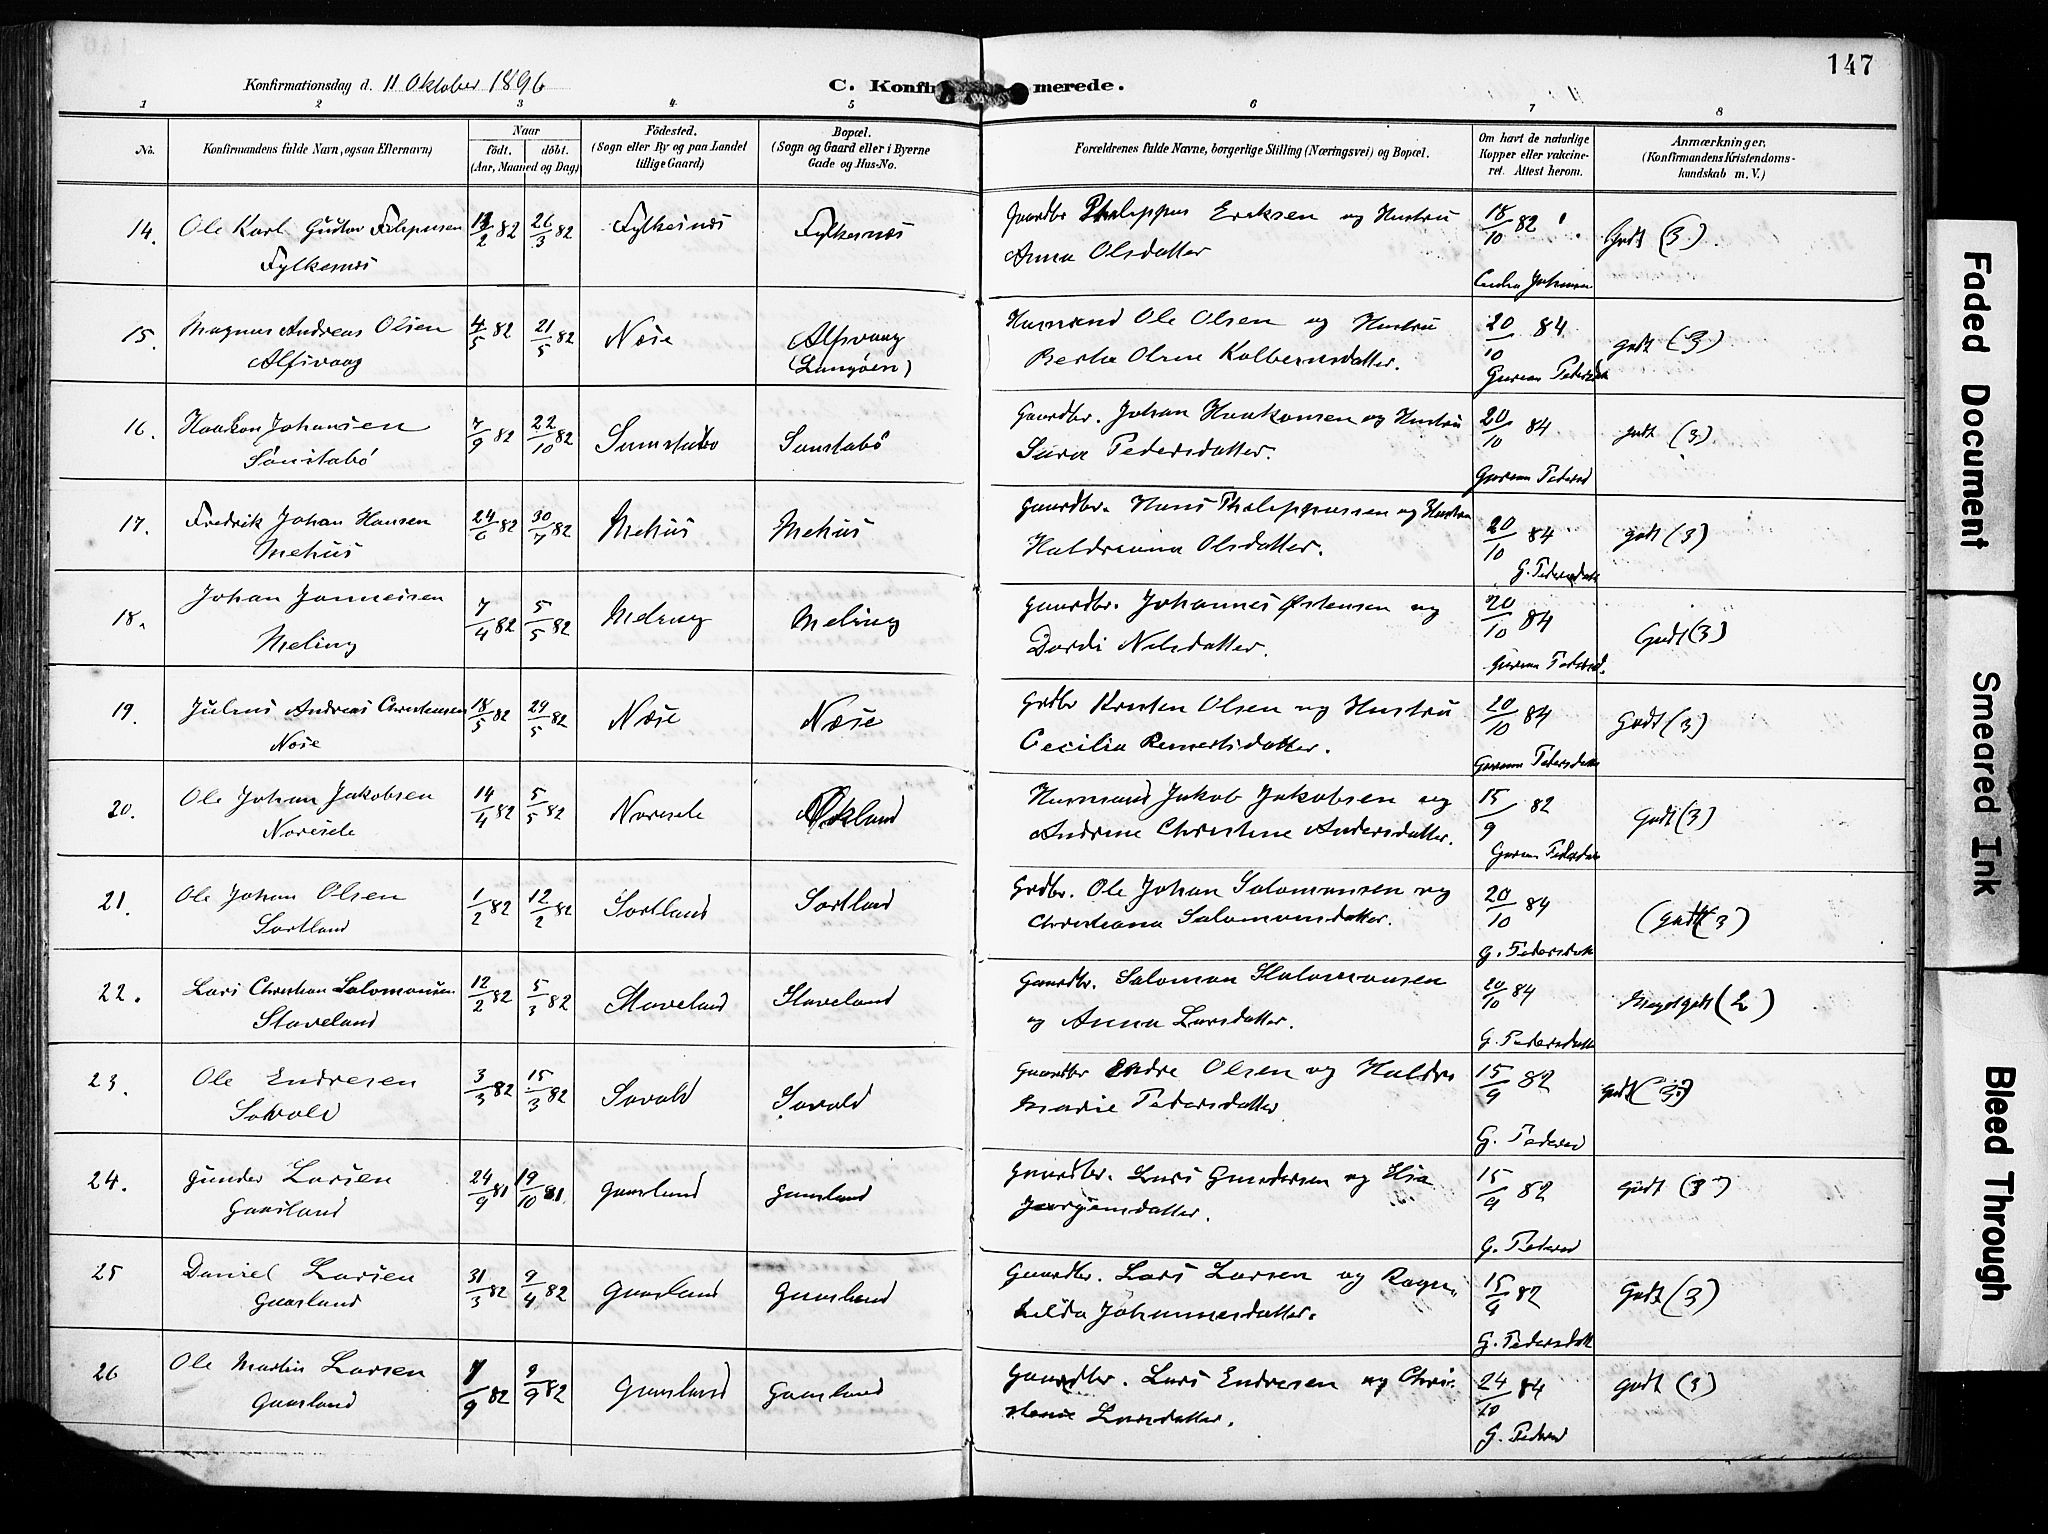 147
Konfirmationsdag d. 11 Oktober 1896
C. Konfirmerede.
1 2 3 4 5 6 7 8
No.
Konfirmandens fulde Navn, ogsaa Efternavn)
Naar
födt. döbt.
(Aar, Maaned og Dag)
Födested.
(Sogn eller By og paa Landet
tillige Gaard)
Bopæl.
(Sogn og Gaard eller i Byerne
Gade og Hus-No.
Forældrenes fulde Navne, borgerlige Stilling (Næringsvei) og Bopæl.
Om havt de naturlige
Kopper eller vakcine-
ret. Attest herom.
Anmærkninger.
(Konfirmandens Kristendoms-
kundskab m. V.)
14. Ole Karl Gustav Filipusen
Fylkesnes
82 26/3 82 Fylkesnes Fylkesnes
Gaardbr Philippus Eriksen og Hustru
Anna Olsdatter
18/10 82
Godt (3)
15. Magnus Andreas Olsen
Alfsvaag
4/5 82 21/5 82 Nose Alfsvaag
(Langøen)
Husmand Ole Olsen og Hustru
Berta Oline Kolbeinsdatter.
20/10 84
godt (3)
16. Haakon Johansen
Sønstabø
7/9 82 22/10 82 Sønstabø Sønstabø
Gaardbr. Johan Haakonsen og Hustru
Sara Pedersdatter.
20/10 84
godt (3)
17. Fredrik Johan Hansen
Mehus
24/6 82 30/7 82 Mehus Mehus
Gaardbr. Hans Philippussen og Hustru
Haldreanna Olsdatter.
20/10 84
G. Pedersdatt
godt (3)
18. Johan Johannesen
Meling
7/4 82 5/5 82 Meling Meling
Gaardbr. Johannes Østensen og
Dordi Nilsdatter.
20/10 84
Godt (3)
19. Julius Andreas Christensen
Nose
18/5 82 29/5 82 Nose Nose
Grdbr Kristen Olsen og Hustru
Cecilia Reinertsdatter.
20/10 84
Godt (3)
20. Ole Johan Jakobsen
Noresele
14/4 82 5/5 82 Noresele Økland
Husmand Jakob Jakobsen og
Andrine Christine Andersdatter.
15/9 82
Godt (3)
21. Ole Johan Olsen
Sortland
1/2 82 12/2 82 Sortland Sortland
Grdbr. Ole Johan Salomonsen og
Christiana Salomonsdatter.
20/10 84
G. Pedersdatt
(godt (3)
22. Lars Christian Salomonsen
Staveland
12/2 82 5/3 82 Staveland Staveland
Gaardbr. Salomon Salomonsen
og Anna Larsdatter.
20/10 84
G. Pedersdatt
Megetgodt (2)
23. Ole Endresen
Savold
3/3 82 15/3 82 Savold Savold
Gaardbr Endre Olsen og Haldis
Marie Pedersdatter
15/9 82
G. Pedersd
godt (3)
24. Gunder Larsen
Gaasland
24/9 81 19/10 81 Gaasland Gaasland
Gaardbr. Lars Gundersen og
Jørgensdatter.
15/9 82
G. Pedersd
Godt (3)
25 Daniel Larsen
Gaasland
31/3 82 9/4 82 Gaasland Gaasland
Gaardbr. Lars Larsen og Ragn-
hilda Johannesdatter.
15/9 82
G. Pedersdatt
Godt (3)
26 Ole Martin Larsen
Gaasland
82 9/9 82 Gaasland Gaasland
Gaardbr. Lars Endresen og Chris-
Larsdatter.
24/10 84
G. Pedersd
Godt (3)
Faded Document
Smeared Ink
Bleed Through